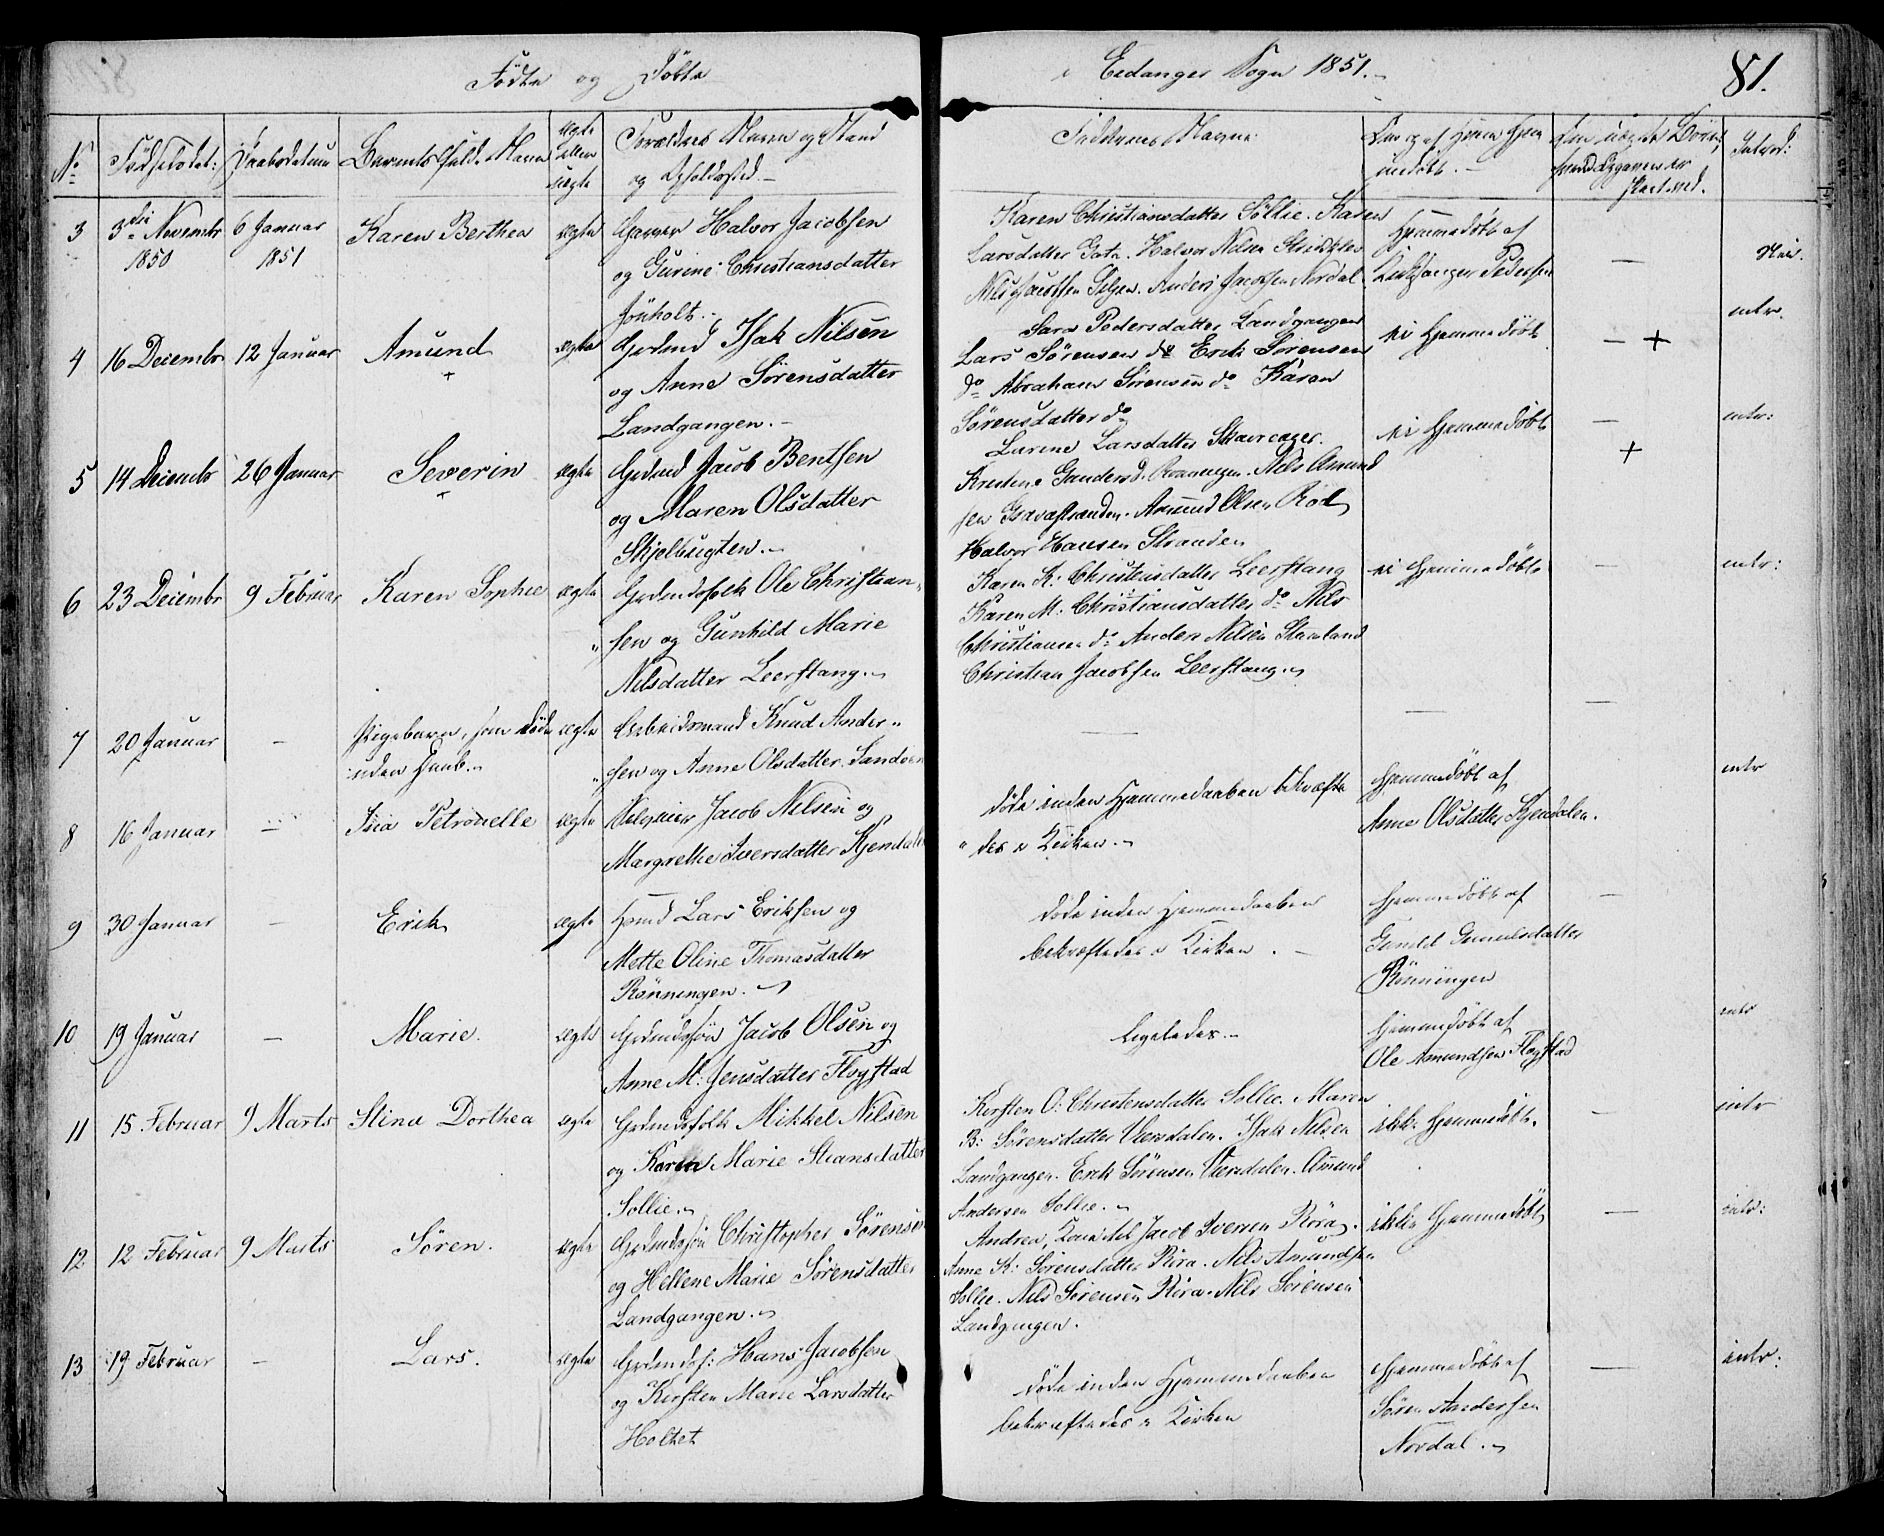 Födte og Döbte
i Eedanger Sogn 1851.
81.
No
Födselsdat:
Daabsdatum
Barnets fulde Navn
ægte
eller
uægte
Forældres Navn og Stand
og Opholdssted.
Faddernes Navne
Om
Introd:
3
3die Novembr
1850
6 Januar
1851
Karen Berthea
ægte
Halvor Jacobsen
og Gurine Christiansdatter
Jönholt.
Karen Christiansdatter Söllie. Karen
Larsdatter Halvor Nilsen
Nils Jacobsen Anders Jacobsen Nordal.
Hjemmedöbt af
Kirkesanger Pedersen
—
4
16 Decembr
12 Januar
Amund
+
ægte
Grdmd Isak Nilsen
og Anne Sörensdatter
Landgangen.
Sara Pedersdatter Landgangen
Lars Sörensen do Erik Sörensen
do Abraham Sörensen do Karen
Sörensdatter do
ei Hjemmedöbt
— +
intr.
5
14 Decembr
26 Januar
Severin
+
ægte
Grdmd Jacob Bentsen
og Maren Olsdatter
Skjelbugten.
Larine Larsdatter
Nils Amund
sen Amund Olsen Röd
Halvor Hansen Stranden
ei Hjemmedöbt
—
+
intr:
6
23 Decembr
9 Februar
Karen Sophie
ægte
Grdmdsfolk Ole Christian
sen og Gunhild Marie
Nilsdatter Leerstang.
Karen K: Christensdatter Leerstang
Karen M: Christiansdatter do Nils
Christiansen do Anders Nilsen
Christian Jacobsen Leerstang.
ei Hjemmedöbt
—
intr:
7
20 Januar
—
Pigebarn, som döde
uden Daab.
ægte
Arbeidsmand Knud Ander
sen og Anne Olsdatter Sandöen
—
—
—
8
16 Januar
—
Petronelle
ægte
Jacob Nilsen og
Margrethe Iversdatter Kjendalen
döde inden Hjemmedaaben bekræfte
des i Kirken.
Hjemmedöbt af
Anne Olsdatter Kjendalen.
intr
9
30 Januar
—
Erik
ægte
Lars Eriksen og
Mette Oline Thomasdatter
Rönningen.
döde inden Hjemmedaaben
bekræftedes i Kirken.
Hjemmedöbt af
Rönningen
—
10
19 Januar
—
Marie.
ægte
Jacob Olsen og
Anne M: Jensdatter Flogstad
Ligeledes.
Hjemmedöbt af
Ole Amundsen Flogstad
intr
11
15 Februar
9 Marts
Stina Dorthea
ægte
Grdmdsfolk Mikkel Nilsen
og Karen Marie Stiansdatter
Sollie.
Kirsten O: Christensdatter Sollie. Maren
B: Sörensdatter Versdalen. Isak Nilsen
Landgangen. Erik Sörensen Versdalen. Amund
Andersen Sollie.
ikke Hjemmedöbt.
—
intr
12
12 Februar
9 Marts
Sören.
ægte
Christopher Sörensen
og Hellene Marie Sörensdatter
Landgangen.
Andrea, Kone til Jacob Iversen Röra.
Anne K: Sörensdatter Röra. Nils Amundsen
Sollie. Nils Sörensen Röra. Nils Sörensen
Landgangen.
ikke Hjemmedöbt
—
intr:
13
19 Februar
—
Lars.
ægte
Hans Jacobsen
og Kirsten Marie Larsdatter
Holtet
döde inden Hjemmedaaben
bekræftedes i Kirken
Hjemmedöbt af
Sören Andersen
Nordal.
—
intr: